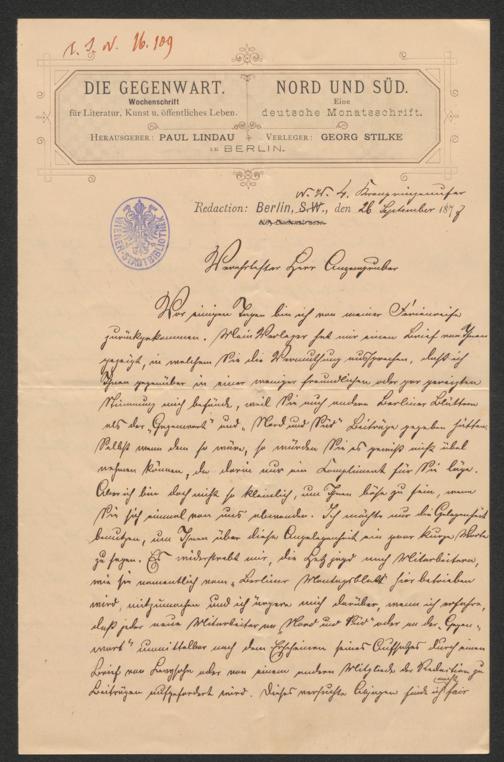 I. N. 16.109
DIE GEGENWART.
Wochenschrift
für Literatur, Kunst u. öffentliches Leben.
NORD UND SÜD.
Eine
deutsche Monatsschrift.
HERAUSGEBER: PAUL LINDAU VERLEGER: GEORG STILKE
IN BERLIN.
N. W. 4. Kronprinzenufer
Redaction: Berlin, S.W., den 26 September 187
WIENER STADTBIBLIOTHEK
Verehrtester Herr Anzengruber
Vor einigen Tagen bin ich von meiner Ferienreise
zurückgekommen. Mein Verleger hat mir einen Brief von Ihnen
gezeigt, in welchem Sie die Vermuthung aussprechen, daß ich
Ihnen gegenüber in einer weniger freundlichen oder gar gereizten
Stimmung mich befinde, weil Sie auch andern Berliner Blättern
als der „Gegenwart" und „Nord und Süd" Beiträge gegeben hätten.
Selbst wenn dem so wäre, so würden Sie es gewiß nicht übel
nehmen können, da darin nur ein Compliment für Sie läge.
Aber ich bin doch nicht so kleinlich, um Ihnen böse zu sein, wenn
Sie sich einmal von uns abwenden. Ich möchte nur die Gelegenheit
benutzen, um Ihnen über diese Angelegenheit ein paar kurze Worte
zu sagen. Es widerstrebt mir, die Hetzjagd nach Mitarbeitern,
wie sie namentlich vom „Berliner Montagsblatt" hier betrieben
wird, mitzumachen und ich ärgere mich darüber, wenn ich erfahre,
daß jeder neue Mitarbeiter an „Nord und Süd" oder an der „Gegen-
wart" unmittelbar nach dem Erscheinen seines Aufsatzes durch einen
Brief von Levysohn oder von einem andern Mitgliede der Redaction zu
Beiträgen aufgefordert wird. Dieses versuchte Abjagen finde ich nicht fair